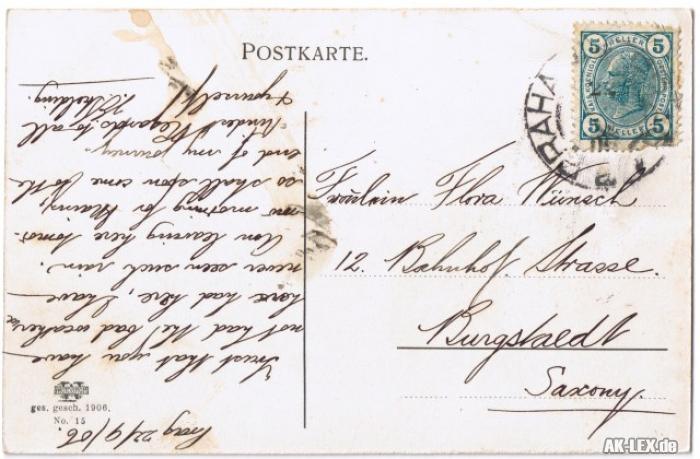 POSTKARTE.
5 HELLER 5
5 HELLER 5
PRAHA
Prag 22/9/06.
Trust that you have
not had the bad weather we
have had here, I have
never seen such rain.
Am leaving here tomor-
row morning for
so shall soon come to the
end of my journey.
Kindest Regards to all
& yourself
Fräulein Flora Wünsch
12. Bahnhof Strasse.
Burgstaedt
Saxony.
ges. gesch. 1906.
No. 15
AK-LEX.de